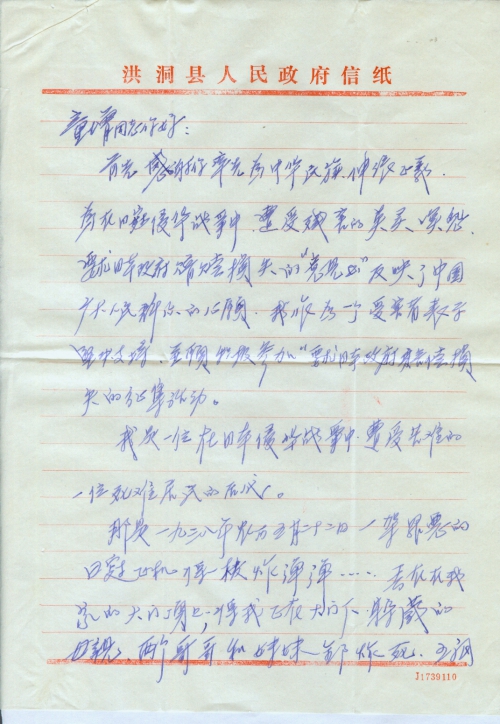 洪洞县人民政府信纸
童增同志你好:
首先感谢你率先为中华民族伸张正义.
为在日寇侵华战争中,遭受残害的英灵、
要求日本政府赔偿损失的“意见书”反映了中国
广大人民群众的心愿。我作为一个受害者表示
坚决支持.并愿积极参加“要求日本政府赔偿损
失的征集活动。
我是一位在日本侵华战争中,遭受苦难的
一位死难居民的后代。
那是一九三八年农历五月二十二日一架罪恶的
日寇飞机将一枚炸弹弹……丢在在我
家的大门顶上,将我正在大门下躲藏的
母亲、两个哥哥和妹妹都炸死.
J1739110